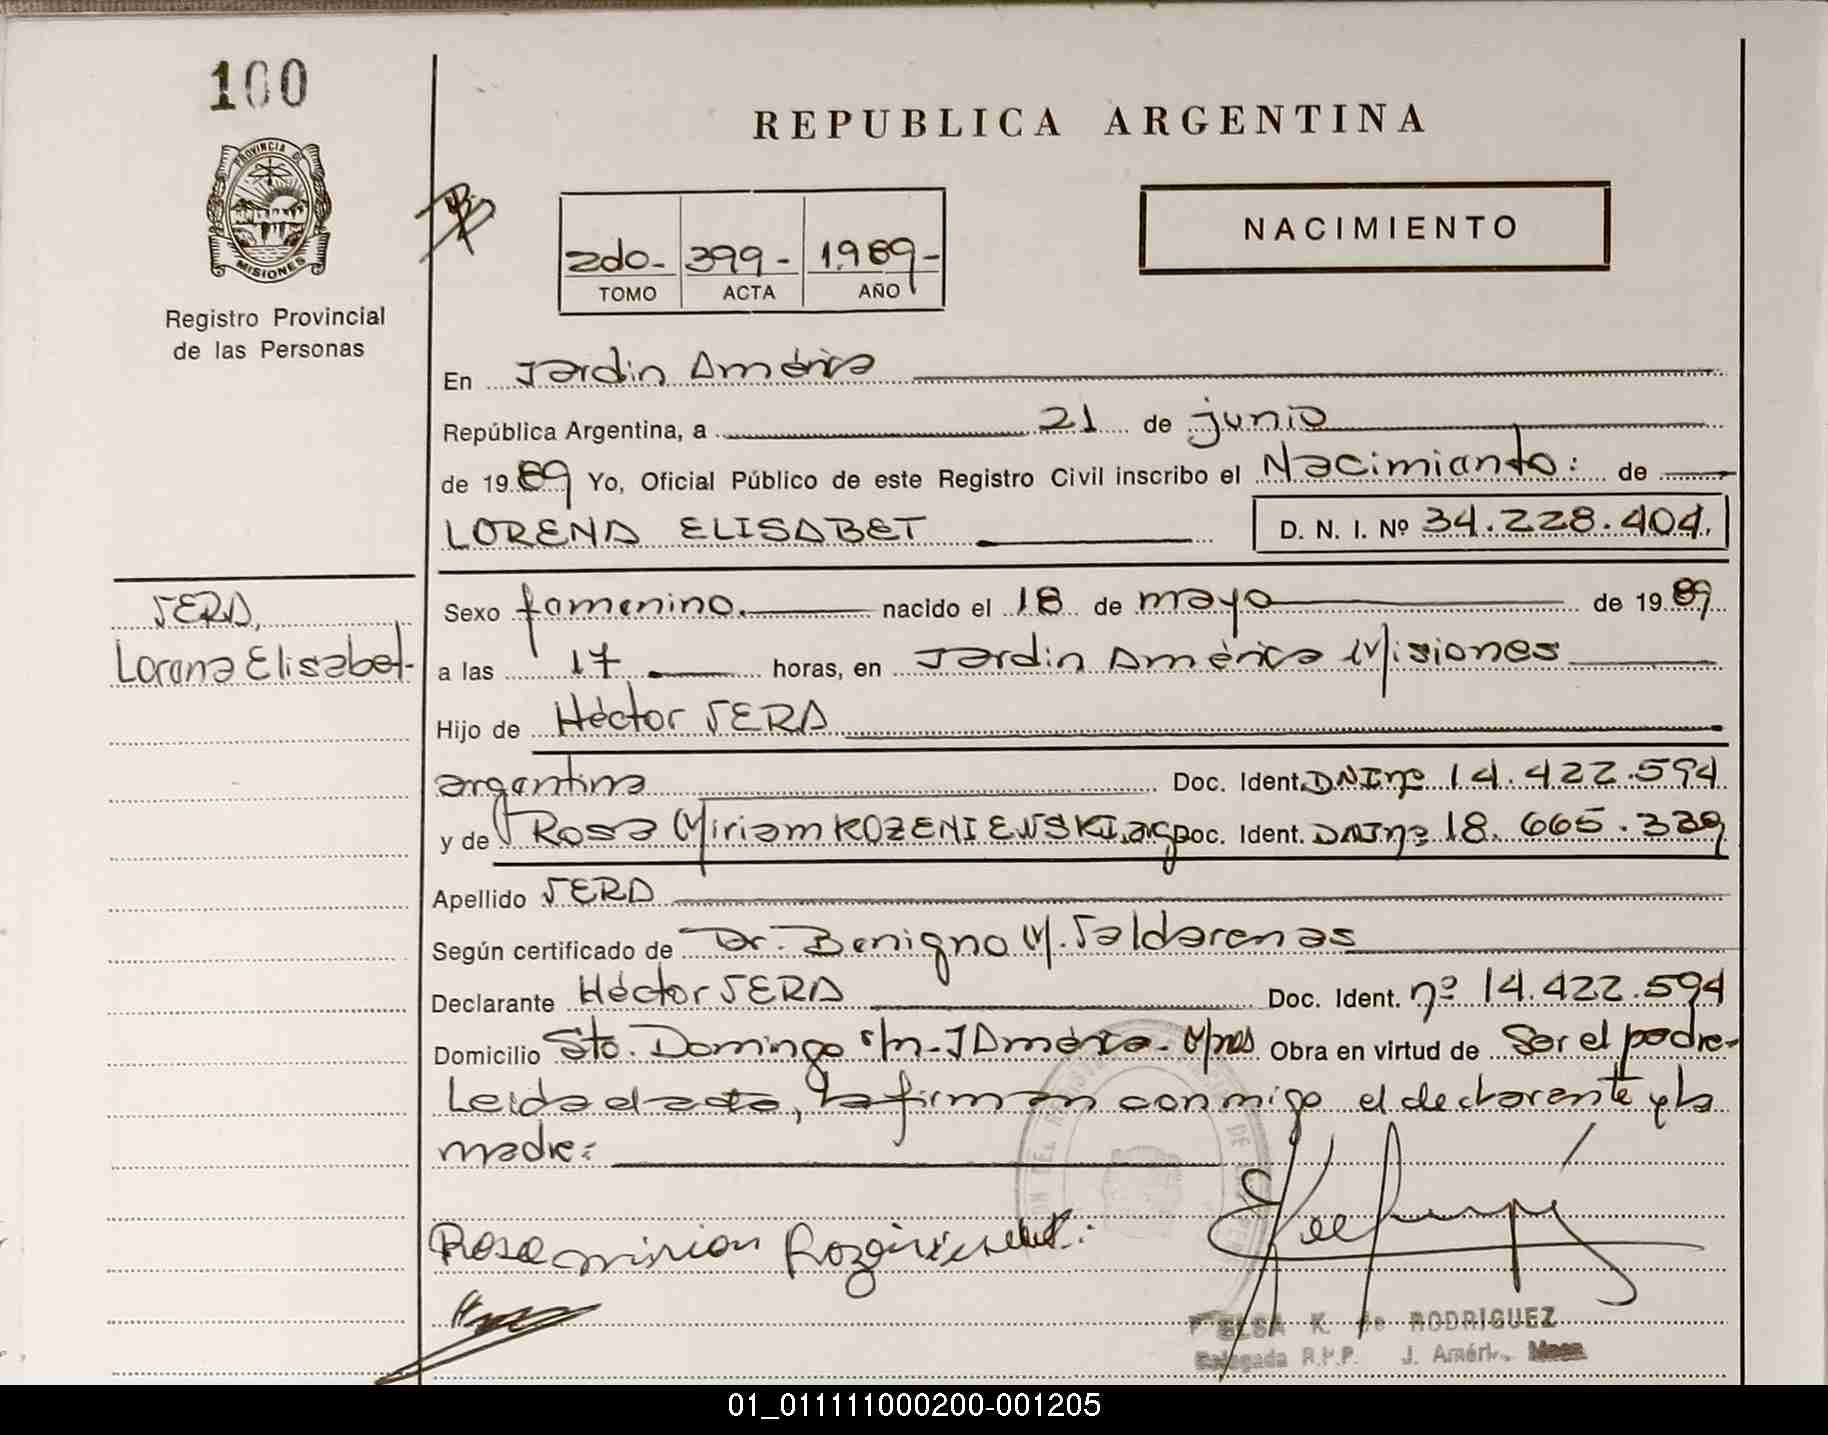 100
PROVINCIA DE
MISIONES
Registro Provincial
de las Personas
REPUBLICA ARGENTINA
NACIMIENTO
2do- 399- 1989-
TOMO ACTA AÑO
En Jardin América
República Argentina, a 21 de junio
de 1989 Yo, Oficial Público de este Registro Civil inscribo el Nacimiento: de
LORENA ELISABET D. N. I. Nº 34.228.404.
SERA,
Lorena Elisabet-
Sexo femenino. nacido el 18 de mayo de 1989
a las 17 horas, en Jardin América Misiones
Hijo de Héctor SERA
argentina Doc. Ident. DNI nº 14.422.594
y de Rosa Miriam KOZENIEWSKI, arg Doc. Ident. DNI nº 18.665.339
Apellido SERA
Según certificado de Dr. Benigno M. Saldarenas
Declarante Héctor SERA Doc. Ident. nº 14.422.594
Domicilio Sto. Domingo s/n-J América-Mnes Obra en virtud de Ser el padre-
Leida el acta, la firman conmigo el declarante y la
madre:
Rosa mirian
ELSA K. de RODRIGUEZ
Delegada R.P.P. J. Améri
01_011111000200-001205